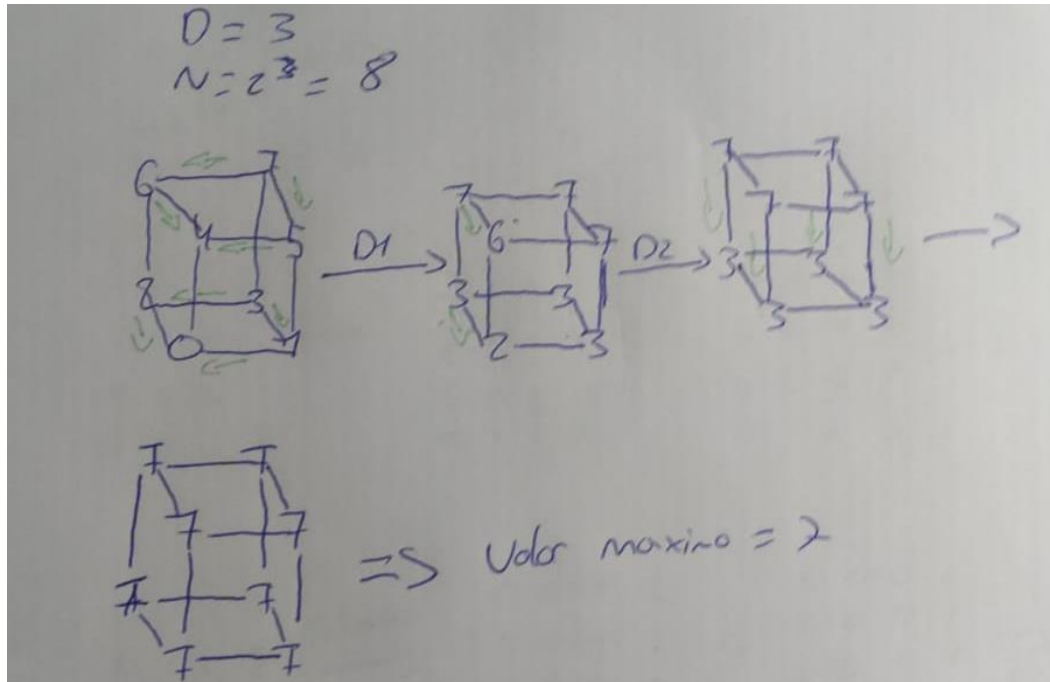 D = 3
N = 2^3 = 8
6 7 4 5 2 3 0 1
D1
7 7 6 7 3 3 2 3
D2
7 7 7 7 3 3 3 3
7 7 7 7 7 7 7 7
=> Valor maximo = 7